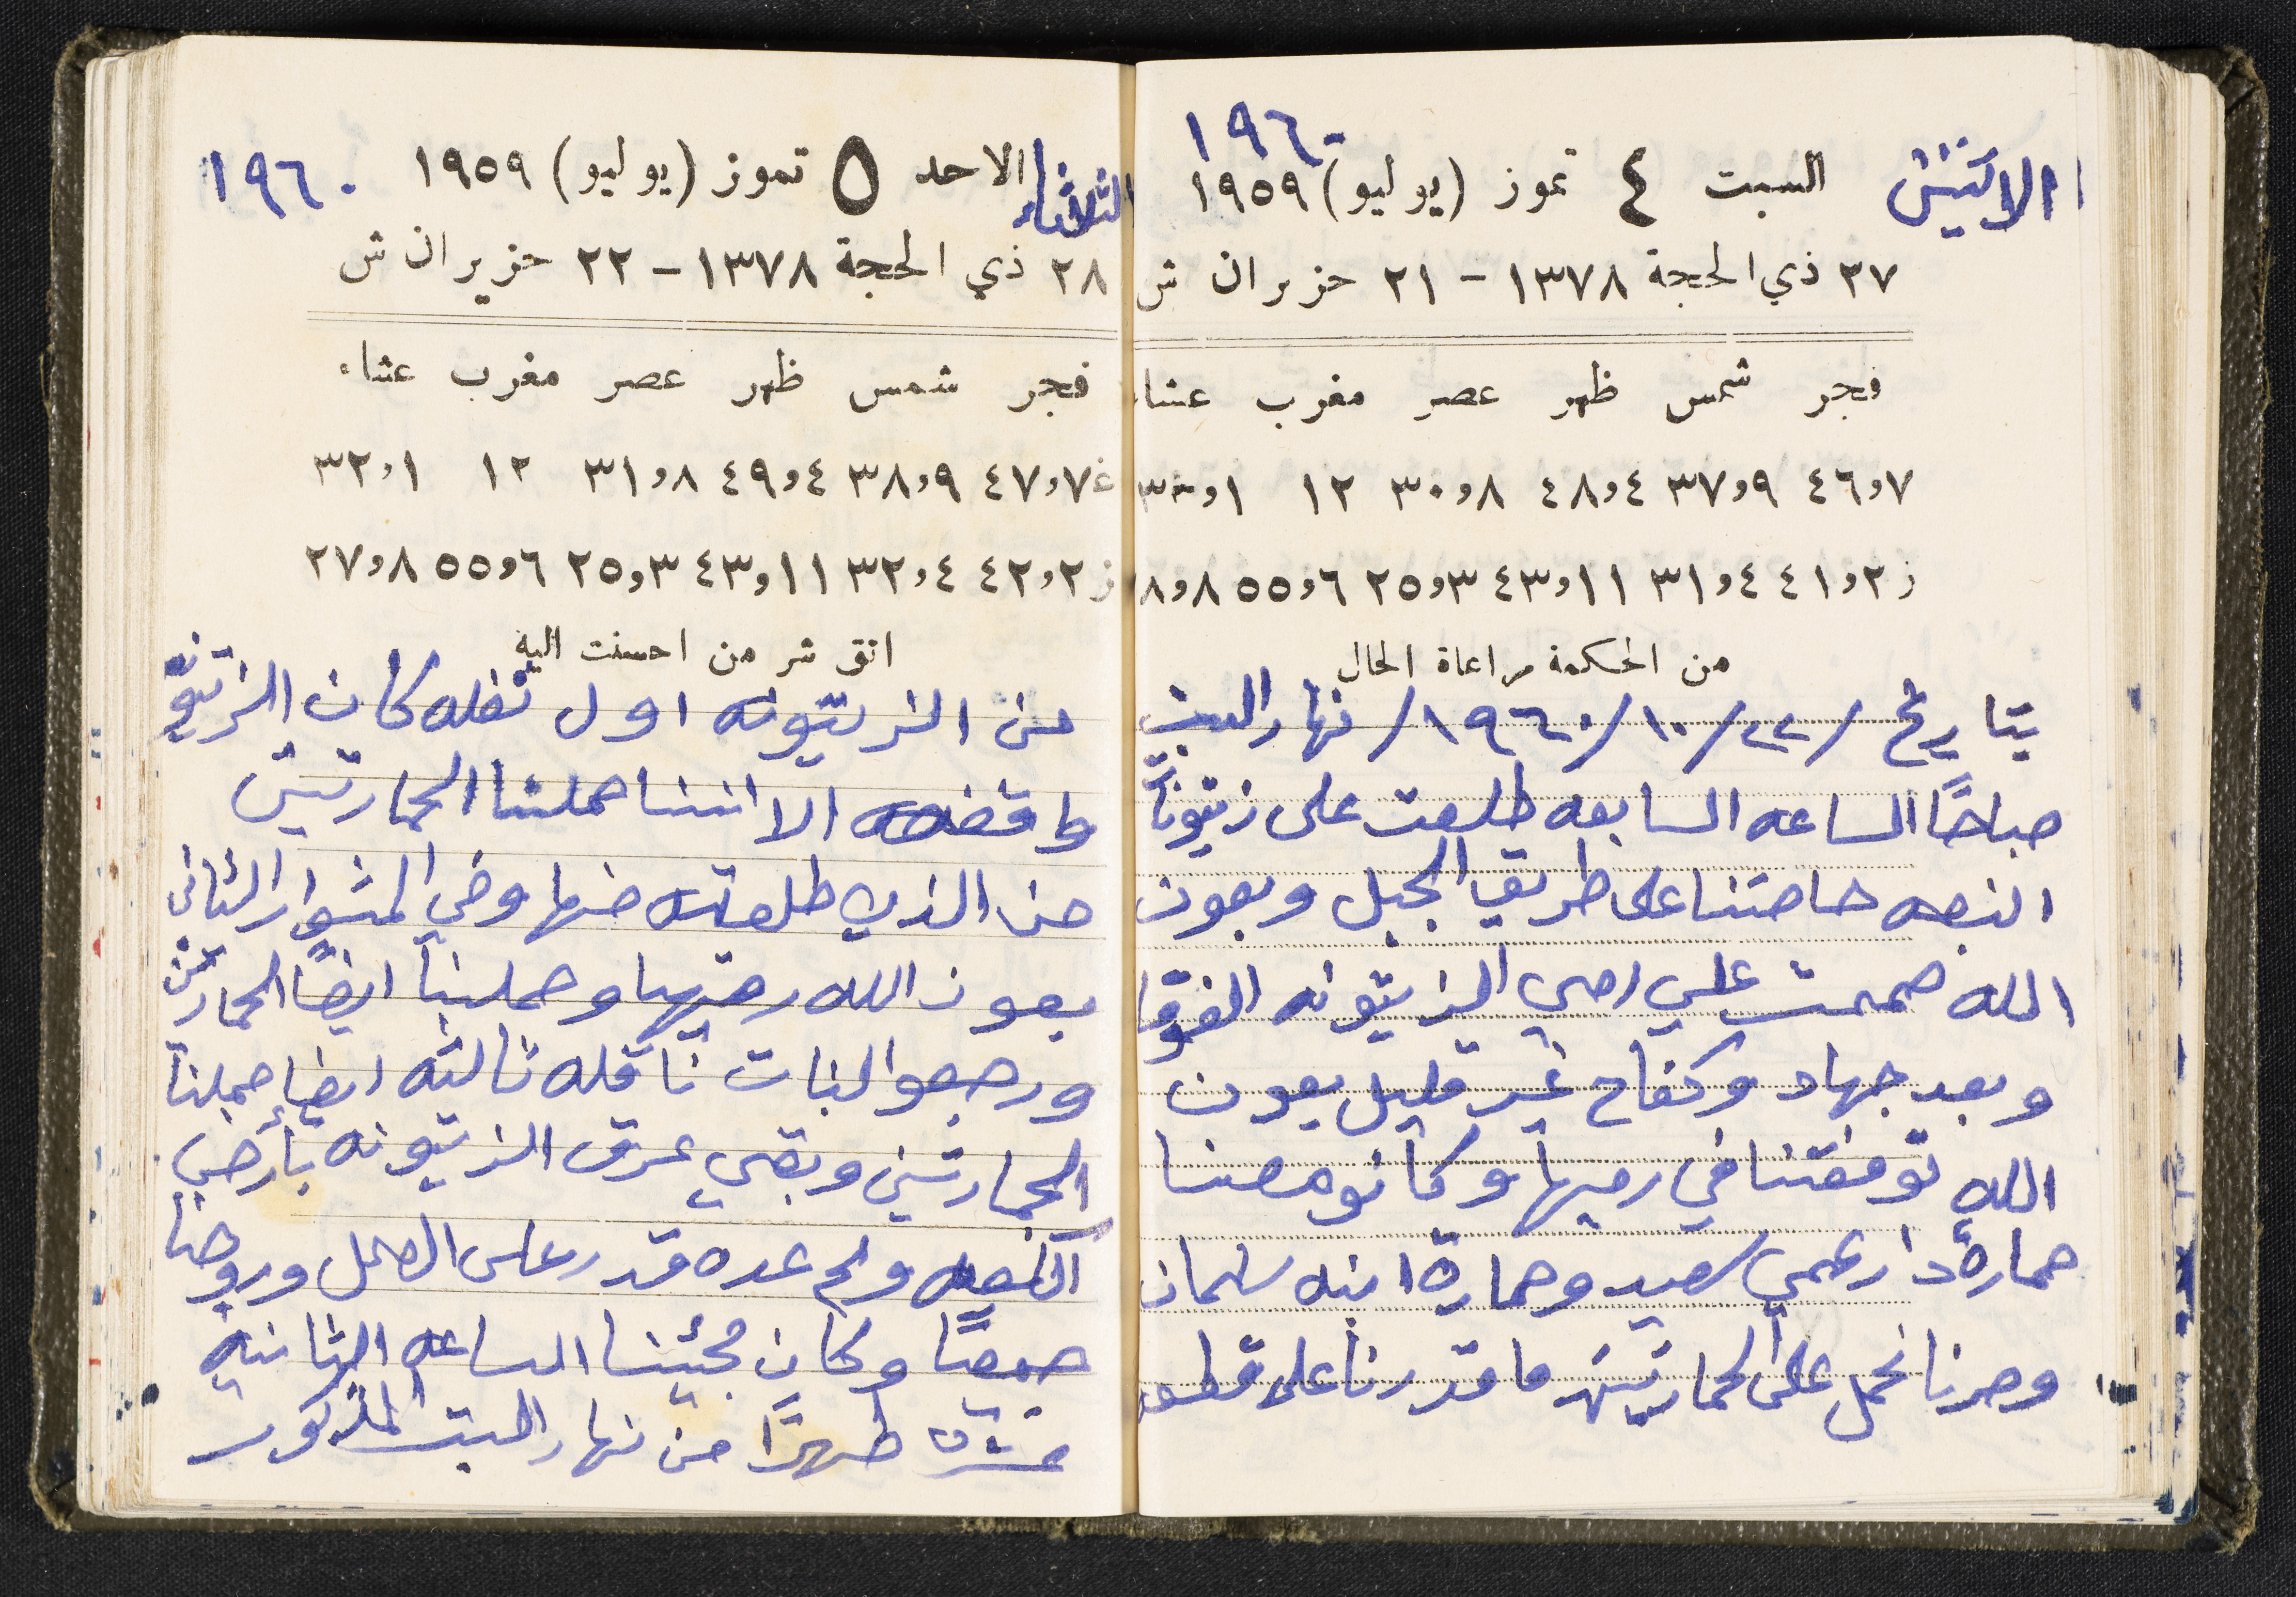 ١٩٦٠
الاثنين السبت ٤ تموز (يوليو) ١٩٥٩
٢٧ ذي الحجة ١٣٧٨ - ٢١ حزيران ش
فجر شمس ظهر عصر مغرب عشاء
٤٦،٧ ٣٧،٩ ٤٨،٤ ٣٠،٨ ١٢ ١
ز ٤١،٢ ٣١،٤ ٤٣،١١ ٢٥،٣ ٥٥،٦ ٨،٨
من الحكمة مراعاة الحال
بتاريخ / ٢٢ / ١٠ / ١٩٦٠ / نهار السبت
صباحًا الساعه السابعه طلعت على زيتونة
النبعه حاصتنا على طريق الجبل وبعون
الله صممت على رمي الزيتونه الفوقا
وبعد جهاد وكفاح غير قليل بعون
الله توفقنا في رميها وكانو معنا
حمارة دار عمي سعيد وحمارة ابنه سلمان
وصرنا نحمل على الحمارتين ما قدرنا على
الثلاثاء الاحد ٥ تموز (يوليو) ١٩٥٩ ١٩٦٠
٢٨ ذي الحجة ١٣٧٨ - ٢٢ حزيران ش
فجر شمس ظهر عصر مغرب عشاء
غ ٤٧،٧ ٣٨،٩ ٤٩،٤ ٣١،٨ ١٢ ٣٢،١
ز ٤٢،٢ ٣٢،٤ ٤٣،١١ ٢٥،٣ ٥٥،٦ ٢٧،٨
اتق شر من احسنت اليه
من الزيتونه اول نقله كان الزيتونه
واقفه الا اننا حملنا الحمارتين
من الذي طلعته منها وفي المشوار الثاني
بعون الله رميتها وحملنا ايضًا الحمارتين
ورجعوا البنات ناقله ثالثه ايضا حملنا
الحمارتين وبقي عرق الزيتونه بأرض
النبعه ولم عده قدر على الحمل وروحنا
جميعًا وكان مجيئنا الساعه الثانيه
ظهرًا من نهار السبت المذكور